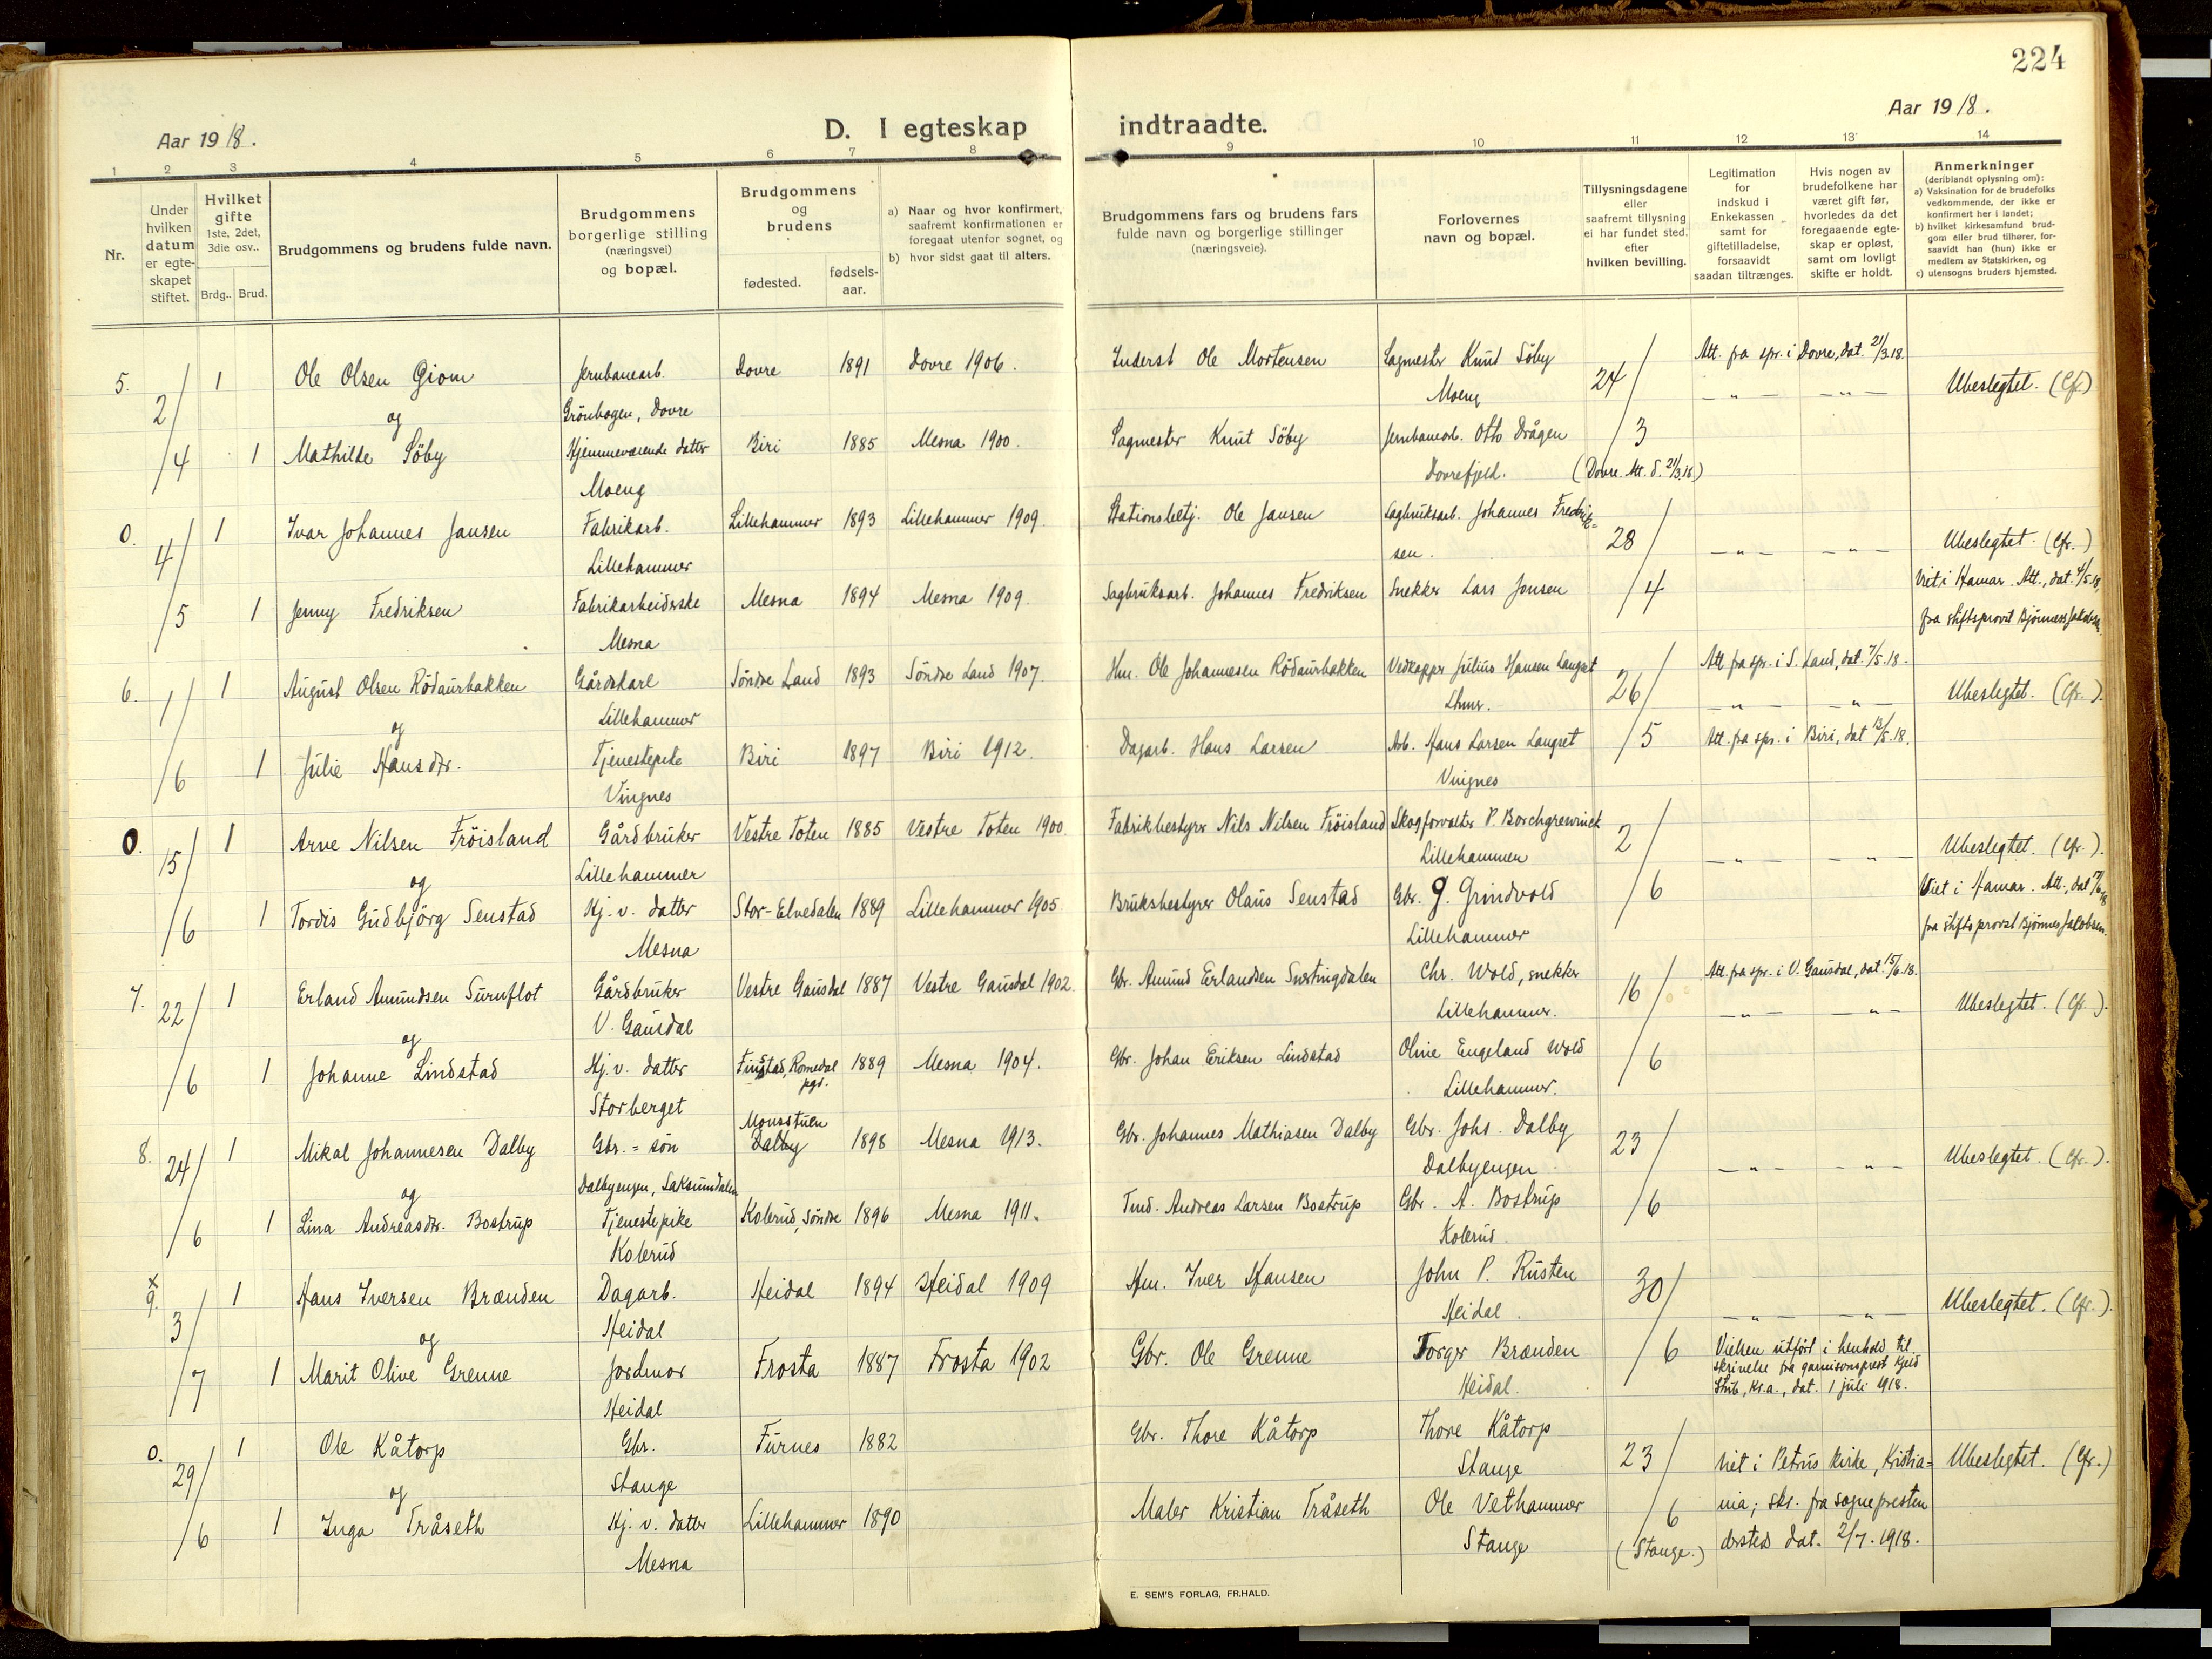 224
Aar 1918.
D. I egteskap indtraadte.
Aar 1918.
1 2 3 4 5 6 7 8 9 10 11 12 13 14
Nr.
Under hvilken datum er egteskapet stiftet.
Hvilket gifte 1ste, 2det, 3die osv..
Brdg.. Brud.
Brudgommens og brudens fulde navn.
Brudgommens borgerlige stilling (næringsvei) og bopæl.
Brudgommens og brudens
fødested.
fødsels-aar.
a) Naar og hvor konfirmert, saafremt konfirmationen er foregaat utenfor sognet, og
b) hvor sidst gaat til alters.
Brudgommens fars og brudens fars fulde navn og borgerlige stillinger (næringsveie).
Forlovernes navn og bopæl.
Tillysningsdagene eller saafremt tillysning ei har fundet sted, efter hvilken bevilling.
Legitimation for indskud i Enkekassen samt for giftetilladelse, forsaavidt saadan tiltrænges.
Hvis nogen av brudefolkene har været gift før, hvorledes da det foregaaende egteskap er opløst, samt om lovligt skifte er holdt.
Anmerkninger (deriblandt oplysning om):
a) Vaksination for de brudefolks vedkommende, der ikke er konfirmert her i landet;
b) hvilket kirkesamfund brudgom eller brud tilhører, forsaavidt han (hun) ikke er medlem av Statskirken, og
c) utensogns bruders hjemsted.
5. 2/ 1 Ole Olsen Giom Jernbanearb. Dovre 1891 Dovre 1906. Inderst Ole Mortensen Sagmester Knut Söby 24/ Att. fra spr. i Dovre, dat. 21/3.18.
og Grönbogen, Dovre Moeng -"- -"- Ubeslegtet. (Cfr.)
/4 1 Mathilde Söby Hjemmeværende datter Biri 1885 Mesna 1900. Sagmester Knut Söby Jernbanearb. Otto Drågen /3
Moeng Dovrefjeld. (Dovre. Att. d. 21/3.18)
0. 4/ 1 Ivar Johannes Jansen Fabrikarb. Lillehammer 1893 Lillehammer 1909. Stationsbetj. Ole Jansen Sagbruksarb. Johannes Fredrik-
Lillehammer sen. 28/ -"- -"- Ubeslegtet. (Cfr.)
/5 1 Jenny Fredriksen Fabrikarbeiderske Mesna 1894 Mesna 1909. Sagbruksarb. Johannes Fredriksen Snekker Lars Jonsen /4 Viet i Hamar. Att., dat. 4/5.18,
Mesna fra stiftsprovst Bjørnæs Jakobsen.
6. 1/ 1 August Olsen Rödaurbakken Gårdskarl Söndre Land 1893 Söndre Land 1907. Hm. Ole Johannesen Rödaurbakken Vedkapper Julius Hansen Langset 26/ Att fra spr. i S. Land, dat. 7/5.18.
og Lillehammer Lhmr. -"- -"- Ubeslegtet. (Cfr.).
/6 1 Julie Hansdtr. Tjenestepike Biri 1897 Biri 1912. Dagarb. Hans Larsen Arb. Hans Larsen Langset /5 Att. fra spr. i Biri, dat 13/5.18.
Vingnes Vingnes
0. 15/ 1 Arne Nilsen Fröisland Gårdbruker Vestre Toten 1885 Vestre Toten 1900. Fabrikbestyrer Nils Nilsen Fröisland Skogforvalter P. Borchgrevinck 2/
og Lillehammer Lillehammer -"- -"- Ubeslegtet. (Cfr.).
/6 1 Tordis Gudbjörg Senstad Hj. v. datter Stor-Elvedalen 1889 Lillehammer 1905 Bruksbestyrer Olaus Senstad Gbr. G. Grindvold /6 Viet i Hamar. Att., dat 17/6.18
Mesna Lillehammer fra stiftsprovst Bjørnæs Jakobsen.
7. 22/ 1 Erland Amundsen Surnflot Gårdbruker Vestre Gausdal 1887 Vestre Gausdal 1902. Gbr. Amund Erlandsen Svatingdalen Chr. Wold, snekker 16/ Att. fra spr. i V. Gausdal, dat. 15/6.18.
og V. Gausdal Lillehammer. -"- -"- Ubeslegtet. (Cfr.).
/6 1 Johanne Lindstad Hj. v. datter Finstad, Romedal pgd. 1889 Mesna 1904. Gbr. Johan Eriksen Lindstad Oline Engeland Wold /6
Storberget Lillehammer.
8. 24/ 1 Mikal Johannesen Dalby Gbr.=søn Monsstuen Dalby 1898 Mesna 1913. Gbr. Johannes Mathiasen Dalby Gbr. Johs. Dalby 23/
og Dalbyengen, Saksumdalen Dalbyengen -"- -"- Ubeslegtet. (Cfr.).
/6 1 Lina Andreasdtr. Bostrup Tjenestepike Kolerud, Söndre 1896 Mesna 1911. Tmd. Andreas Larsen Bostrup Gbr. A. Bostrup /6
Kolerud Kolerud.
x 9. 3/ 1 Hans Iversen Brænden Dagarb. Heidal 1894 Heidal 1909 Hm. Iver Hansen John P. Rusten 30/
og Heidal Heidal. -"- -"- Ubeslegtet. (Cfr.).
/7 1 Marit Olive Grenne Jordmor Frosta 1887 Frosta 1902 Gbr. Ole Grenne Torger Brænden /6 Vielsen utført i henhold til
skrivelse fra garnisonsprest Kjeld
Heidal Heidal. Stub, Kr.a., dat. 1 juli 1918.
0. 29/ 1 Ole Kåtorp Gbr. Furnes 1882 Gbr. Thore Kåtorp Thore Kåtorp
og Stange Stange 23/ Viet i Petrus kirke, Kristia= Ubeslegtet. (Cfr.)
/6 1 Inga Tråseth Hj. v. datter Lillehammer 1890 Maler Kristian Tråseth Ole Vethammer /6 nia; skr. fra sognepresten
Mesna Stange (Stange.) dersteds dat. 2/7.1918.
E. SEM'S FORLAG, FR.HALD.